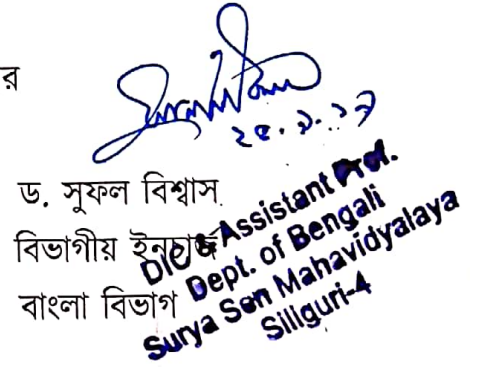 র
২৫.১.১৭
ড. সুফল বিশ্বাস
বিভাগীয় ইনচার্জ
বাংলা বিভাগ
DIC & Assistant Prof.
Dept. of Bengali
Surya Sen Mahavidyalaya
Siliguri-4